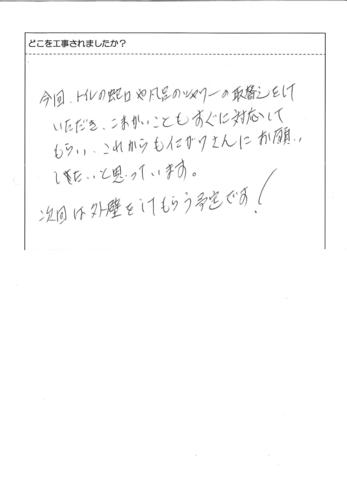 どこを工事されましたか？
今回、トイレの蛇口や風呂のシャワーの取替えをして
いただき、こまかいこともすぐに対応して
もらい、これからも さんにお願い
したいと思っています。
次回は外壁をしてもらう予定です！